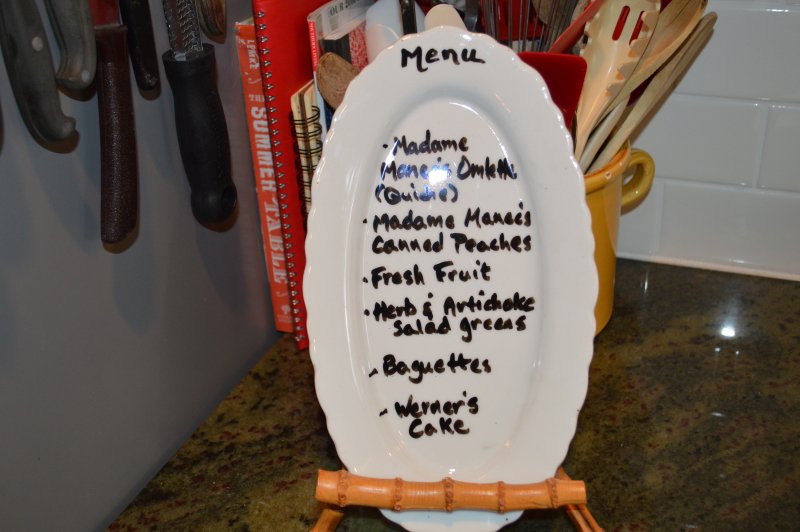 Menu
· Madame
Manec's Omlette
(Quiche)
· Madame Manec's
Canned Peaches
· Fresh Fruit
· Herb & Artichoke
Salad greens
- Baguettes
- Werner's
Cake
THE SUMMER TABLE
LEMKE